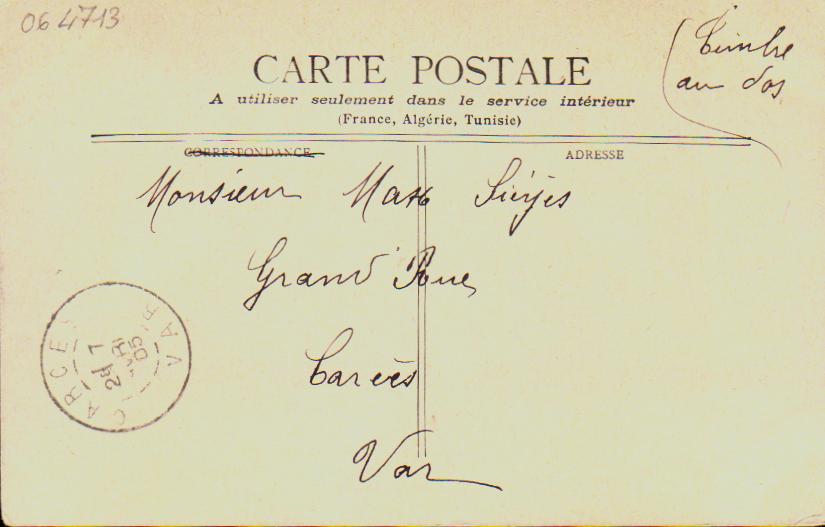 06 4713
Timbre
au dos
CARTE POSTALE
A utiliser seulement dans le service intérieur
(France, Algérie, Tunisie)
CORRESPONDANCE
ADRESSE
Monsieur Max Sieyès
Grand'Rue
Carcès
Var
CARCES VAR